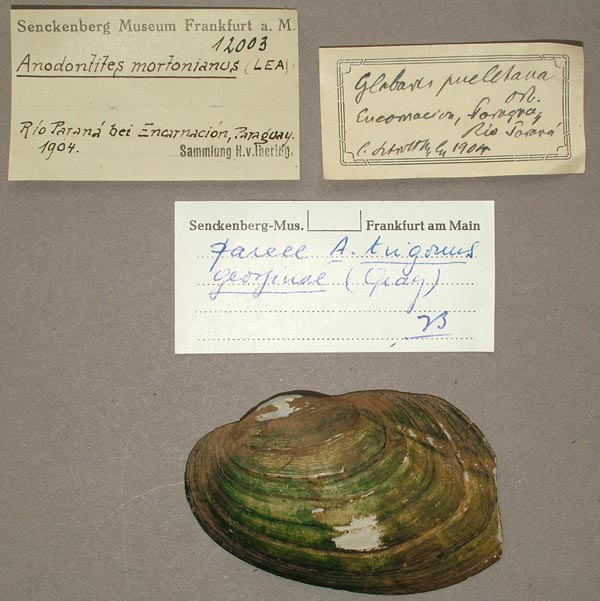 Senckenberg Museum Frankfurt a. M.
12003
Anodontites mortonianus (LEA)
Río Paraná bei Encarnación, Paraguay.
1904.
Sammlung H.v.Ihering.
Glabaris puelchana
Orb.
Encarnacion, Paraguay,
Rio Paraná
C. 1904
Senckenberg-Mus. Frankfurt am Main
parece A. trigonus
georginae (Gray)